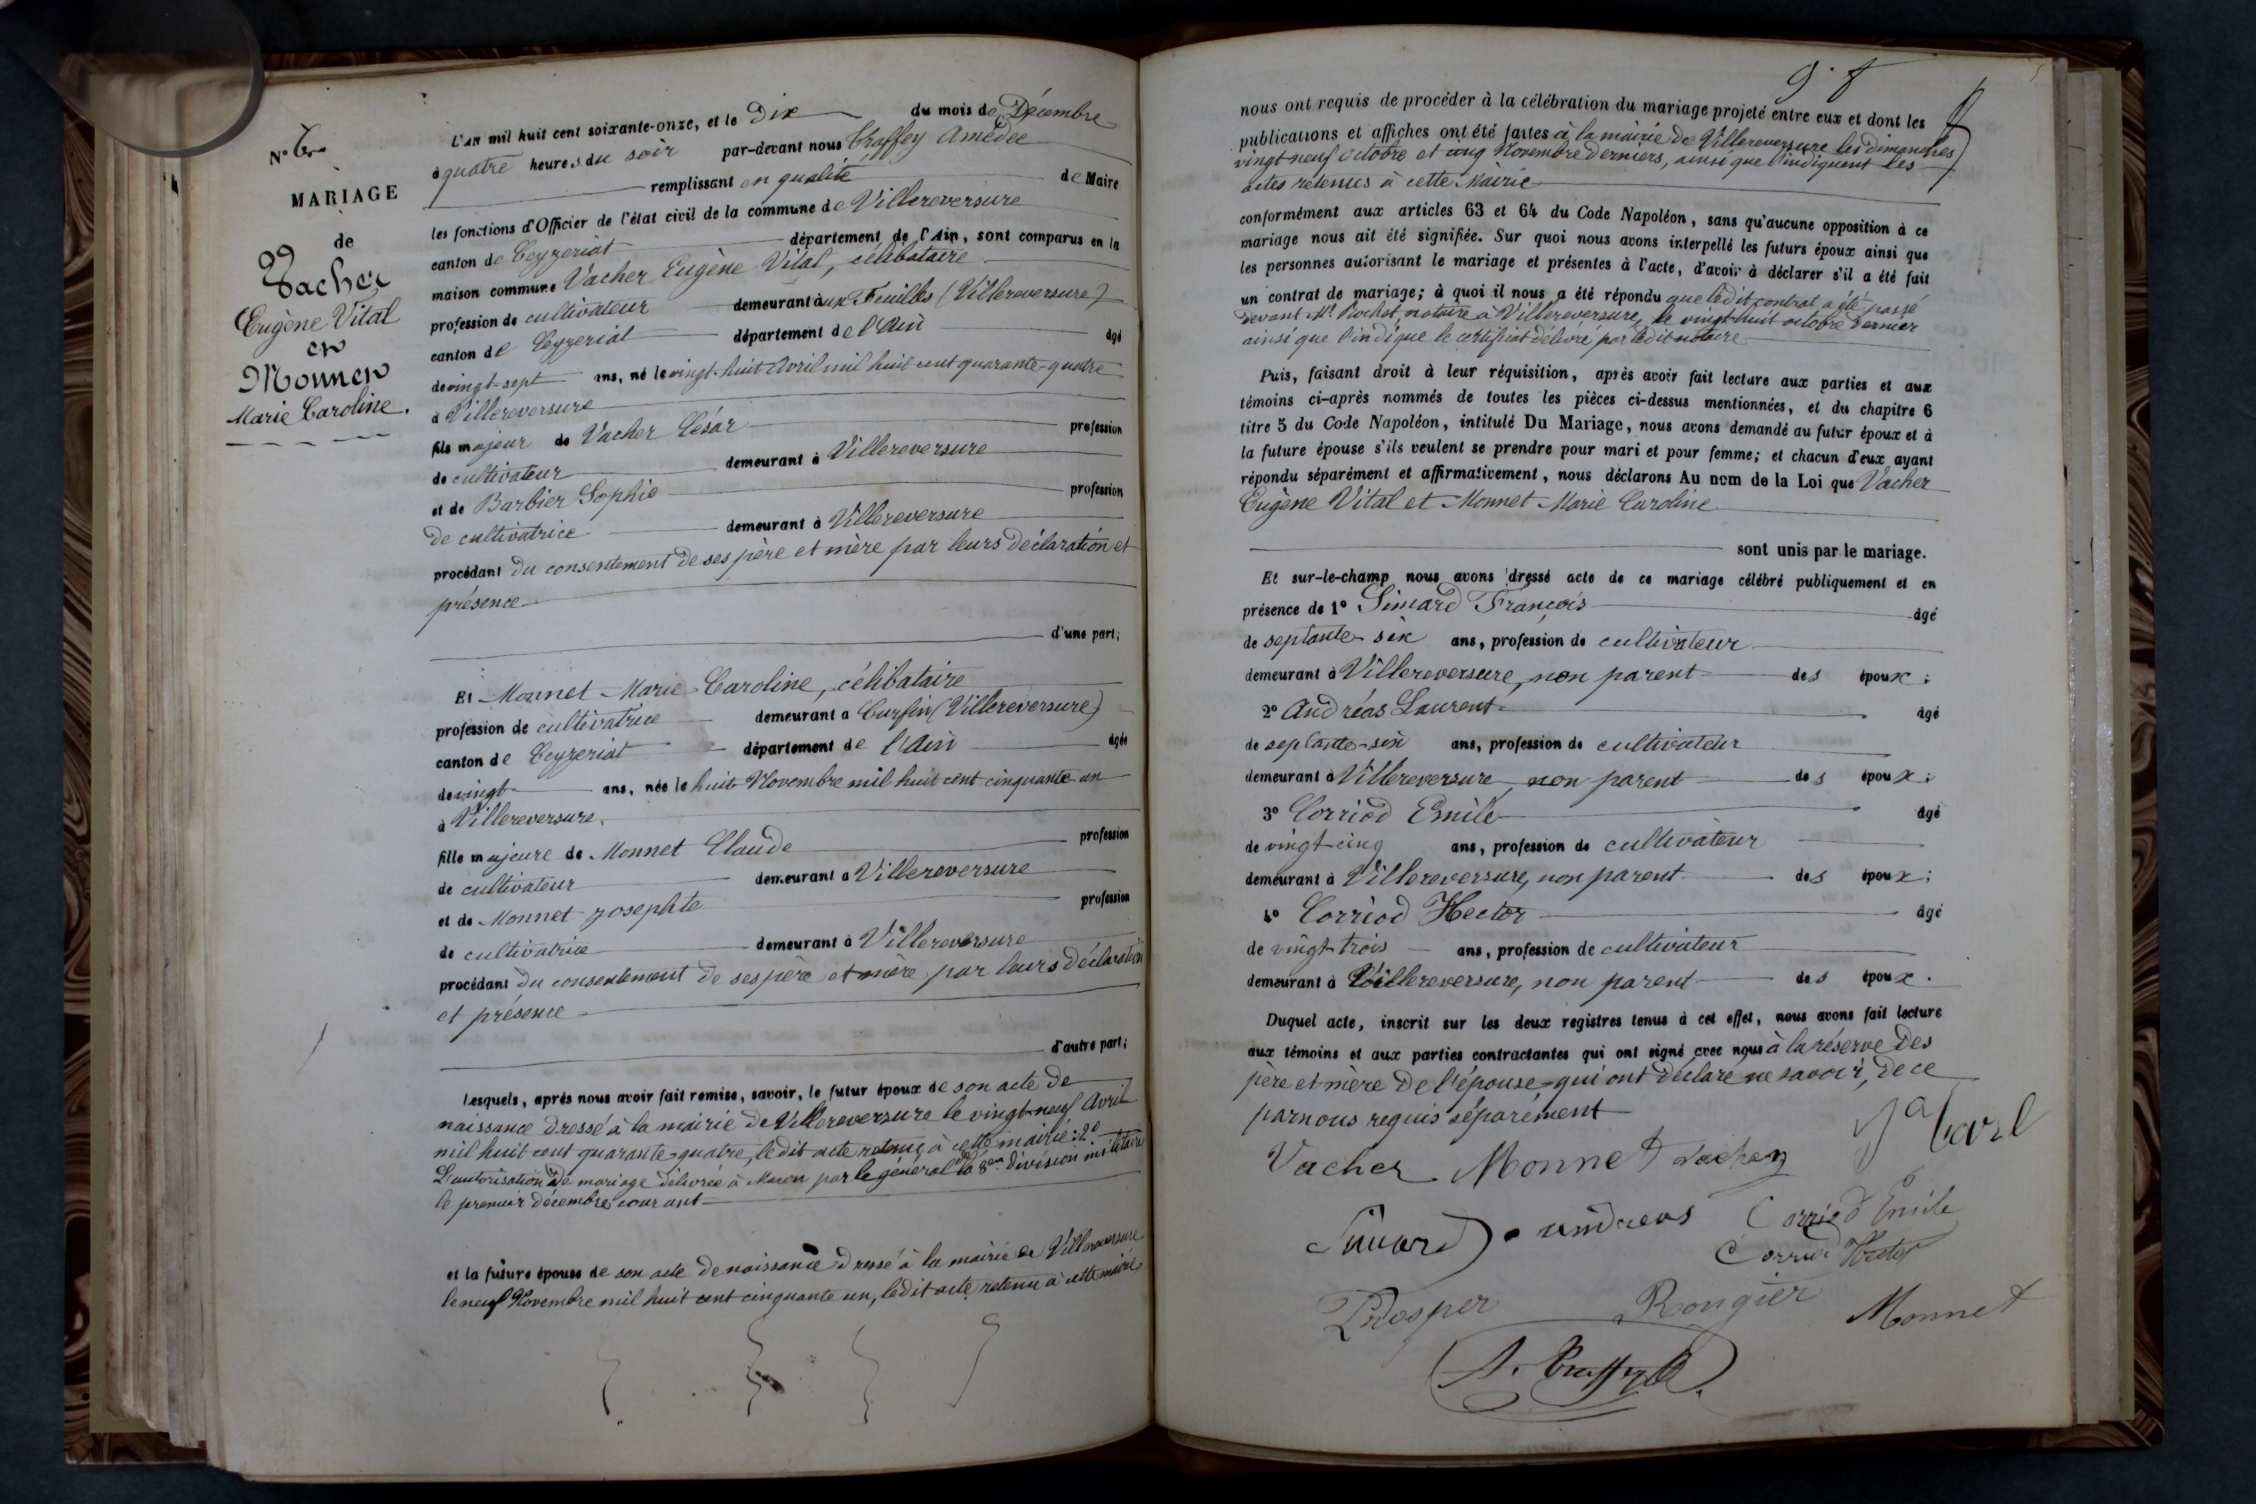 N° 6
MARIAGE
de
Vacher
Eugène Vital
et
Monnet
Marie Caroline.
L'AN mil huit cent soixante-onze, et le Dix du mois de Décembre
à quatre heures du soir par-devant nous Chaffey Amédée
remplissant en qualité de Maire
les fonctions d'Officier de l'état civil de la commune de Villereversure
canton de Ceyzeriat département de l'Ain, sont comparus en la
maison commune Vacher Eugène Vital, célibataire
profession de cultivateur demeurant aux Feuilles (Villereversure)
canton de Ceyzeriat département de l'Ain âgé
de vingt-sept ans, né le vingt-huit Avril mil huit cent quarante-quatre
à Villereversure
fils majeur de Vacher César profession
de cultivateur demeurant à Villereversure
et de Barbier Sophie profession
de cultivatrice demeurant à Villereversure
procédant du consentement de ses père et mère par leurs déclaration et
présence
d'une part;
Et Monnet Marie Caroline, célibataire
profession de cultivatrice demeurant à (Villereversure)
canton de Ceyzeriat département de l'Ain âgée
de vingt ans, née le huit Novembre mil huit cent cinquante-un
à Villereversure.
fille majeure de Monnet Claude profession
de cultivateur demeurant à Villereversure
et de Monnet Josephte profession
de cultivatrice demeurant à Villereversure
procédant du consentement de ses père et mère par leurs déclaration
et présence
d'autre part;
Lesquels, après nous avoir fait remise, savoir, le futur époux de son acte de
naissance dressé à la mairie de Villereversure le vingt-neuf Avril
mil huit cent quarante-quatre, ledit acte retenu à cette mairie: 2°
L'autorisation de mariage délivrée à Macon par le général de la 8em division militaire
le premier décembre courant
et la future épouse de son acte de naissance dressé à la mairie de Villereversure
le neuf Novembre mil huit cent cinquante un, ledit acte retenu à cette mairie
nous ont requis de procéder à la célébration du mariage projeté entre eux et dont les
publications et affiches ont été faites à la mairie de Villereversure les dimanches
vingt neuf octobre et cinq Novembre derniers, ainsi que l'indiquent les
actes retenus à cette Mairie
conformément aux articles 63 et 64 du Code Napoléon, sans qu'aucune opposition à ce
mariage nous ait été signifiée. Sur quoi nous avons interpellé les futurs époux ainsi que
les personnes autorisant le mariage et présentes à l'acte, d'avoir à déclarer s'il a été fait
un contrat de mariage; à quoi il nous a été répondu que ledit contrat a été passé
devant Me Rochet, notaire à Villereversure, le vingt-huit octobre dernier
ainsi que l'indique le certificat délivré par ledit notaire
Puis, faisant droit à leur réquisition, après avoir fait lecture aux parties et aux
témoins ci-après nommés de toutes les pièces ci-dessus mentionnées, et du chapitre 6
titre 5 du Code Napoléon, intitulé Du Mariage, nous avons demandé au futur époux et à
la future épouse s'ils veulent se prendre pour mari et pour femme; et chacun d'eux ayant
répondu séparément et affirmativement, nous déclarons Au nom de la Loi que Vacher
Eugène Vital et Monnet Marie Caroline
sont unis par le mariage.
Et sur-le-champ nous avons dressé acte de ce mariage célébré publiquement et en
présence de 1° Simard François âgé
de septante-six ans, profession de cultivateur
demeurant à Villereversure, non parent des époux;
2° Andréas Laurent âgé
de septante-six ans, profession de cultivateur
demeurant à Villereversure, non parent des époux;
3° Corriod Emile âgé
de vingt-cinq ans, profession de cultivateur
demeurant à Villereversure, non parent des époux;
4° Corriod Hector âgé
de vingt trois ans, profession de cultivateur
demeurant à Villereversure, non parent des époux.
Duquel acte, inscrit sur les deux registres tenus à cet effet, nous avons fait lecture
aux témoins et aux parties contractantes qui ont signé avec nous à la réserve des
père et mère de l'épouse qui ont déclaré ne savoir, de ce
par nous requis séparément
Vacher Monnet Vacher
Simard andreas Corriod Emile
Corriod Hector
Prosper Rougier Monnet